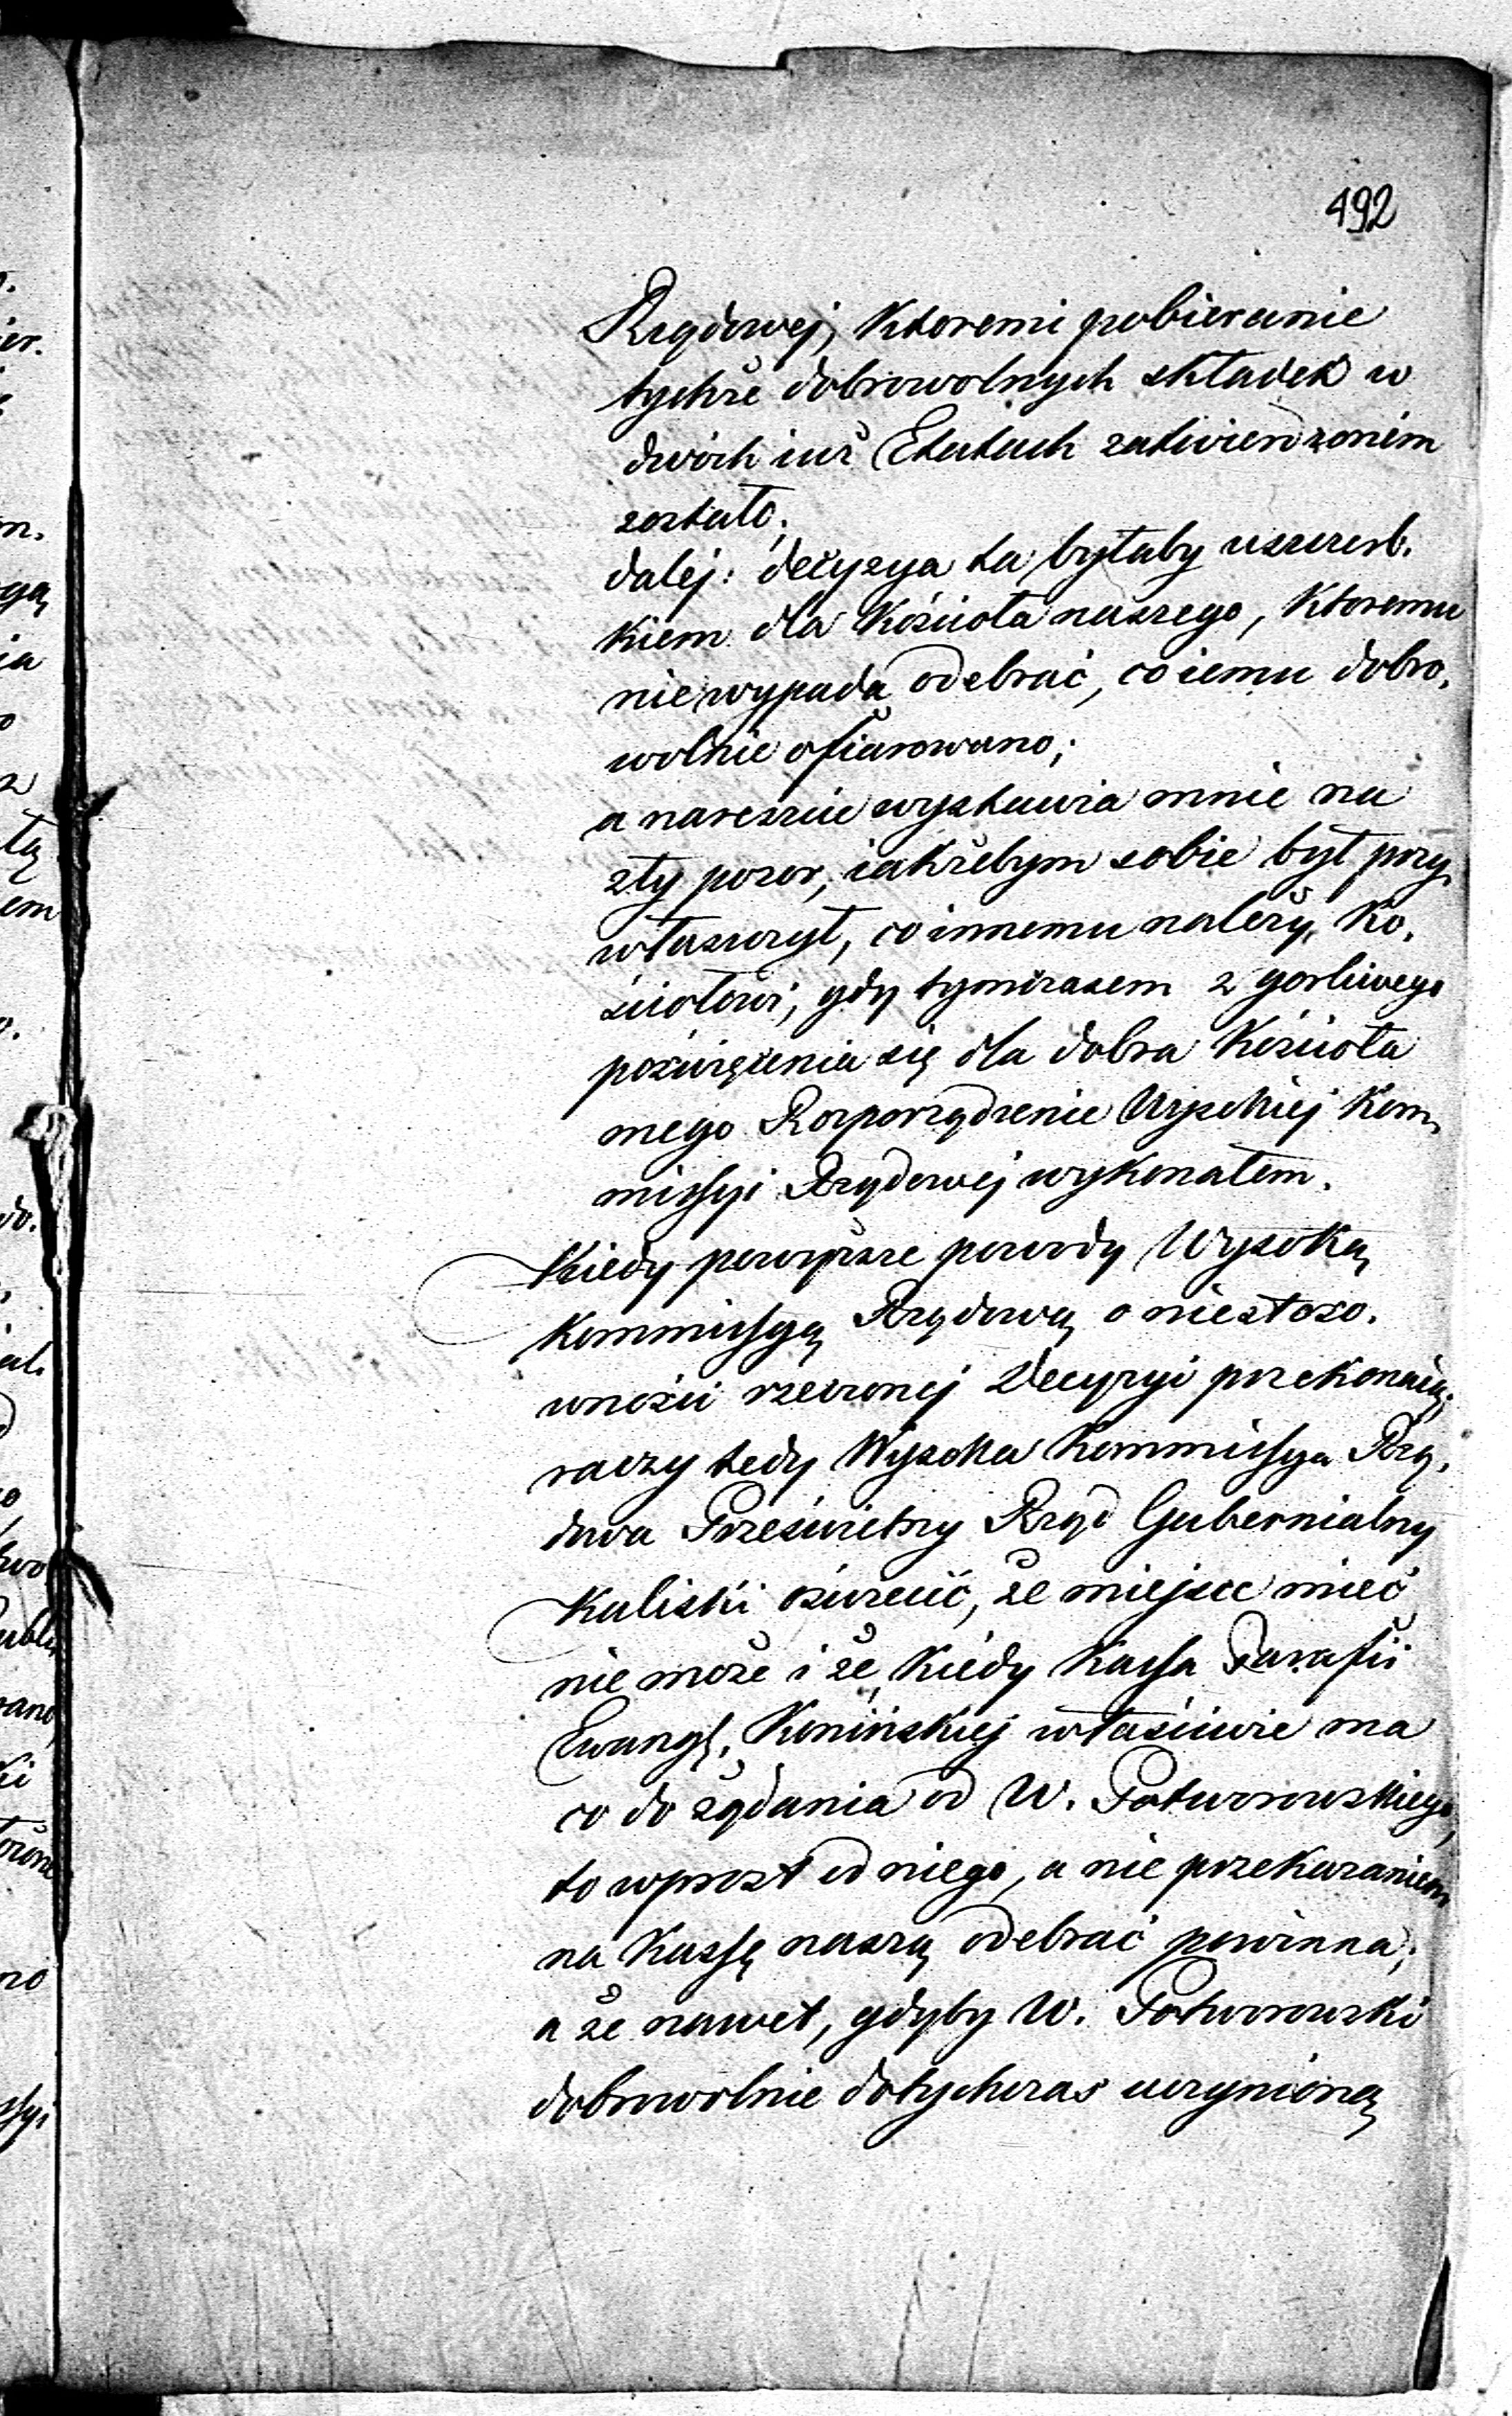 492
Rządowej, ktoremi pobieranie
tychże dobrowolnych składek w
dwóch iuż Etatach zatwierdzoném
zostało;
daléj: decyzya ta byłaby uszczerb.
kiem dla Kościoła naszego, ktoremu
nie wypada odebrać, co iemu dobro,
wolnie ofiarowano;
a nareszcie wystawia mnie na
zły pozor, iakżebym sobie był przy,
właszczył, co innemu należy, Ko,
ściołowi, gdy tymczasem z gorliwego
poświęcenia się dla dobra Kościoła
mego Rozporządzenie Wysokiej Kom,
missyi Rządowéj wykonałem.
Kiedy powyższe powody Wysoką
Kommissyą Rządową o niestoso.
wności rzeczonej Decyzyi przekonaią;
raczy tedy Wysoka Kommissya Rzą,
dowa Prześwietny Rząd Gubernialny
Kaliski oświecić, że miejsce mieć
nie może i że, kiedy Kassa Parafii
Ewangl. Konińskiej właściwie ma
co do żądania od W. Potworowskiego,
to wprost od niego, a nie przekazaniem
na Kassę naszą odebrać powinna;
a że nawet, gdyby W. Potworowski
dobrowolnie dotychczas uczynioną